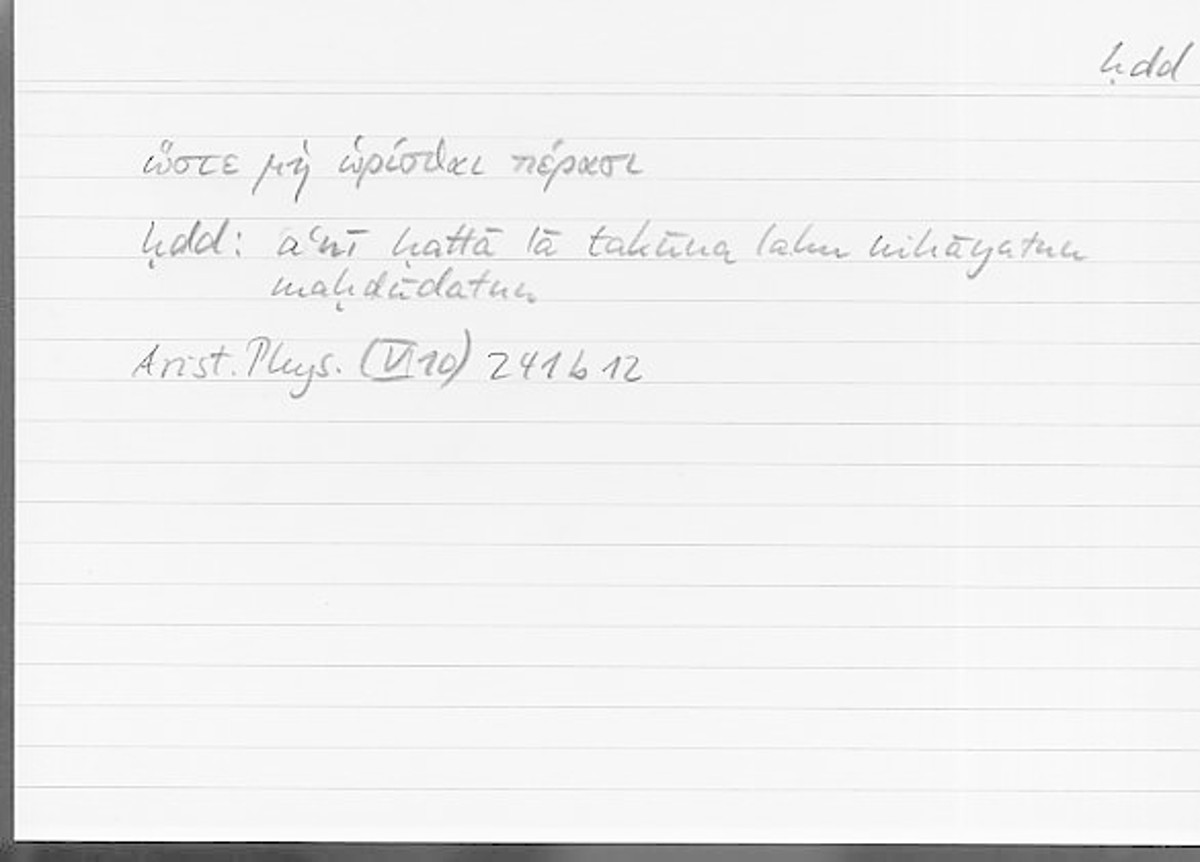 ḥdd
ὥστε μὴ ὡρίσθαι πέρασι
ḥdd: aʿnī ḥattā lā takūna lahu nihāyatun
maḥdūdatun
Arist. Phys. (VI 10) 241 b 12